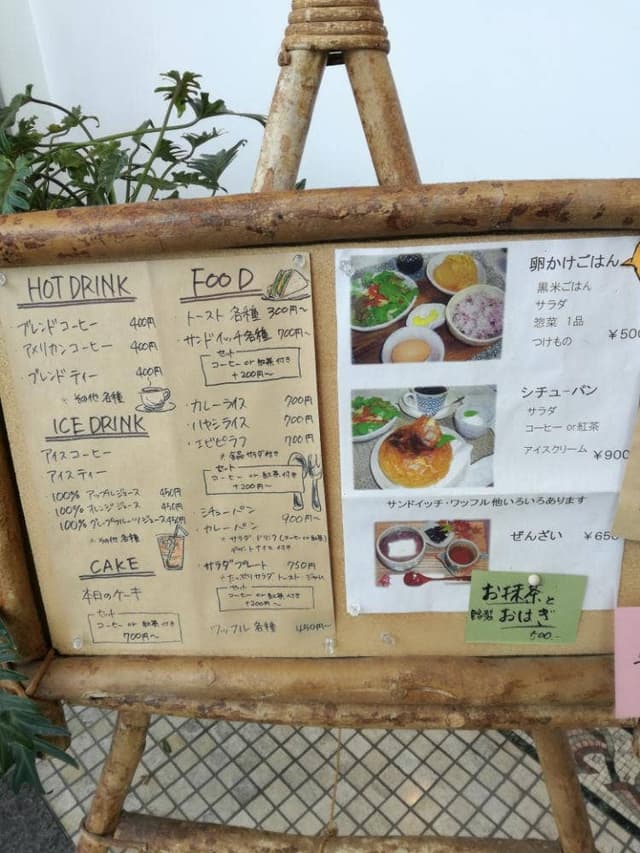 HOT DRINK
・ブレンドコーヒー 400円
・アメリカンコーヒー 400円
・ブレンドティー 400円
※その他各種
ICE DRINK
アイスコーヒー
アイスティー
100% アップルジュース 450円
100% オレンジジュース 450円
100% グレープフルーツジュース 450円
※その他各種
CAKE
本日のケーキ
セット
コーヒー or 紅茶付き
700円〜
FOOD
・トースト各種 300円〜
・サンドイッチ各種 700円〜
セット
コーヒー or 紅茶付き
+200円〜
・カレーライス 700円
・ハヤシライス 700円
・エビピラフ 700円
※全品サラダ付き
セット
コーヒー or 紅茶付き
+200円〜
・シチューパン
カレーパン 900円〜
※サラダ ドリンク(コーヒー or 紅茶)
デザートアイス付き
・サラダプレート 750円
※たっぷりサラダ トースト
セット
コーヒー or 紅茶付き
+200円〜
ワッフル各種 450円〜
卵かけごはん
黒米ごはん
サラダ
惣菜 1品
つけもの
¥500
シチューパン
サラダ
コーヒー or紅茶
アイスクリーム
¥900
サンドイッチ・ワッフル他いろいろあります
ぜんざい ¥650
お抹茶と
おはぎ
500-